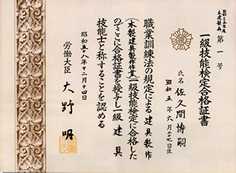 第一号
一級技能検定合格証書
氏名 佐久間博嗣
昭和五年六月十七日生
職業訓練法の規定による建具製作
(木製建具製作作業)一級技能検定に合格した
のでここに合格証書を授与し一級 建具
技能士と称することを認める
昭和五八年十二月二十四日
労働大臣 大野明